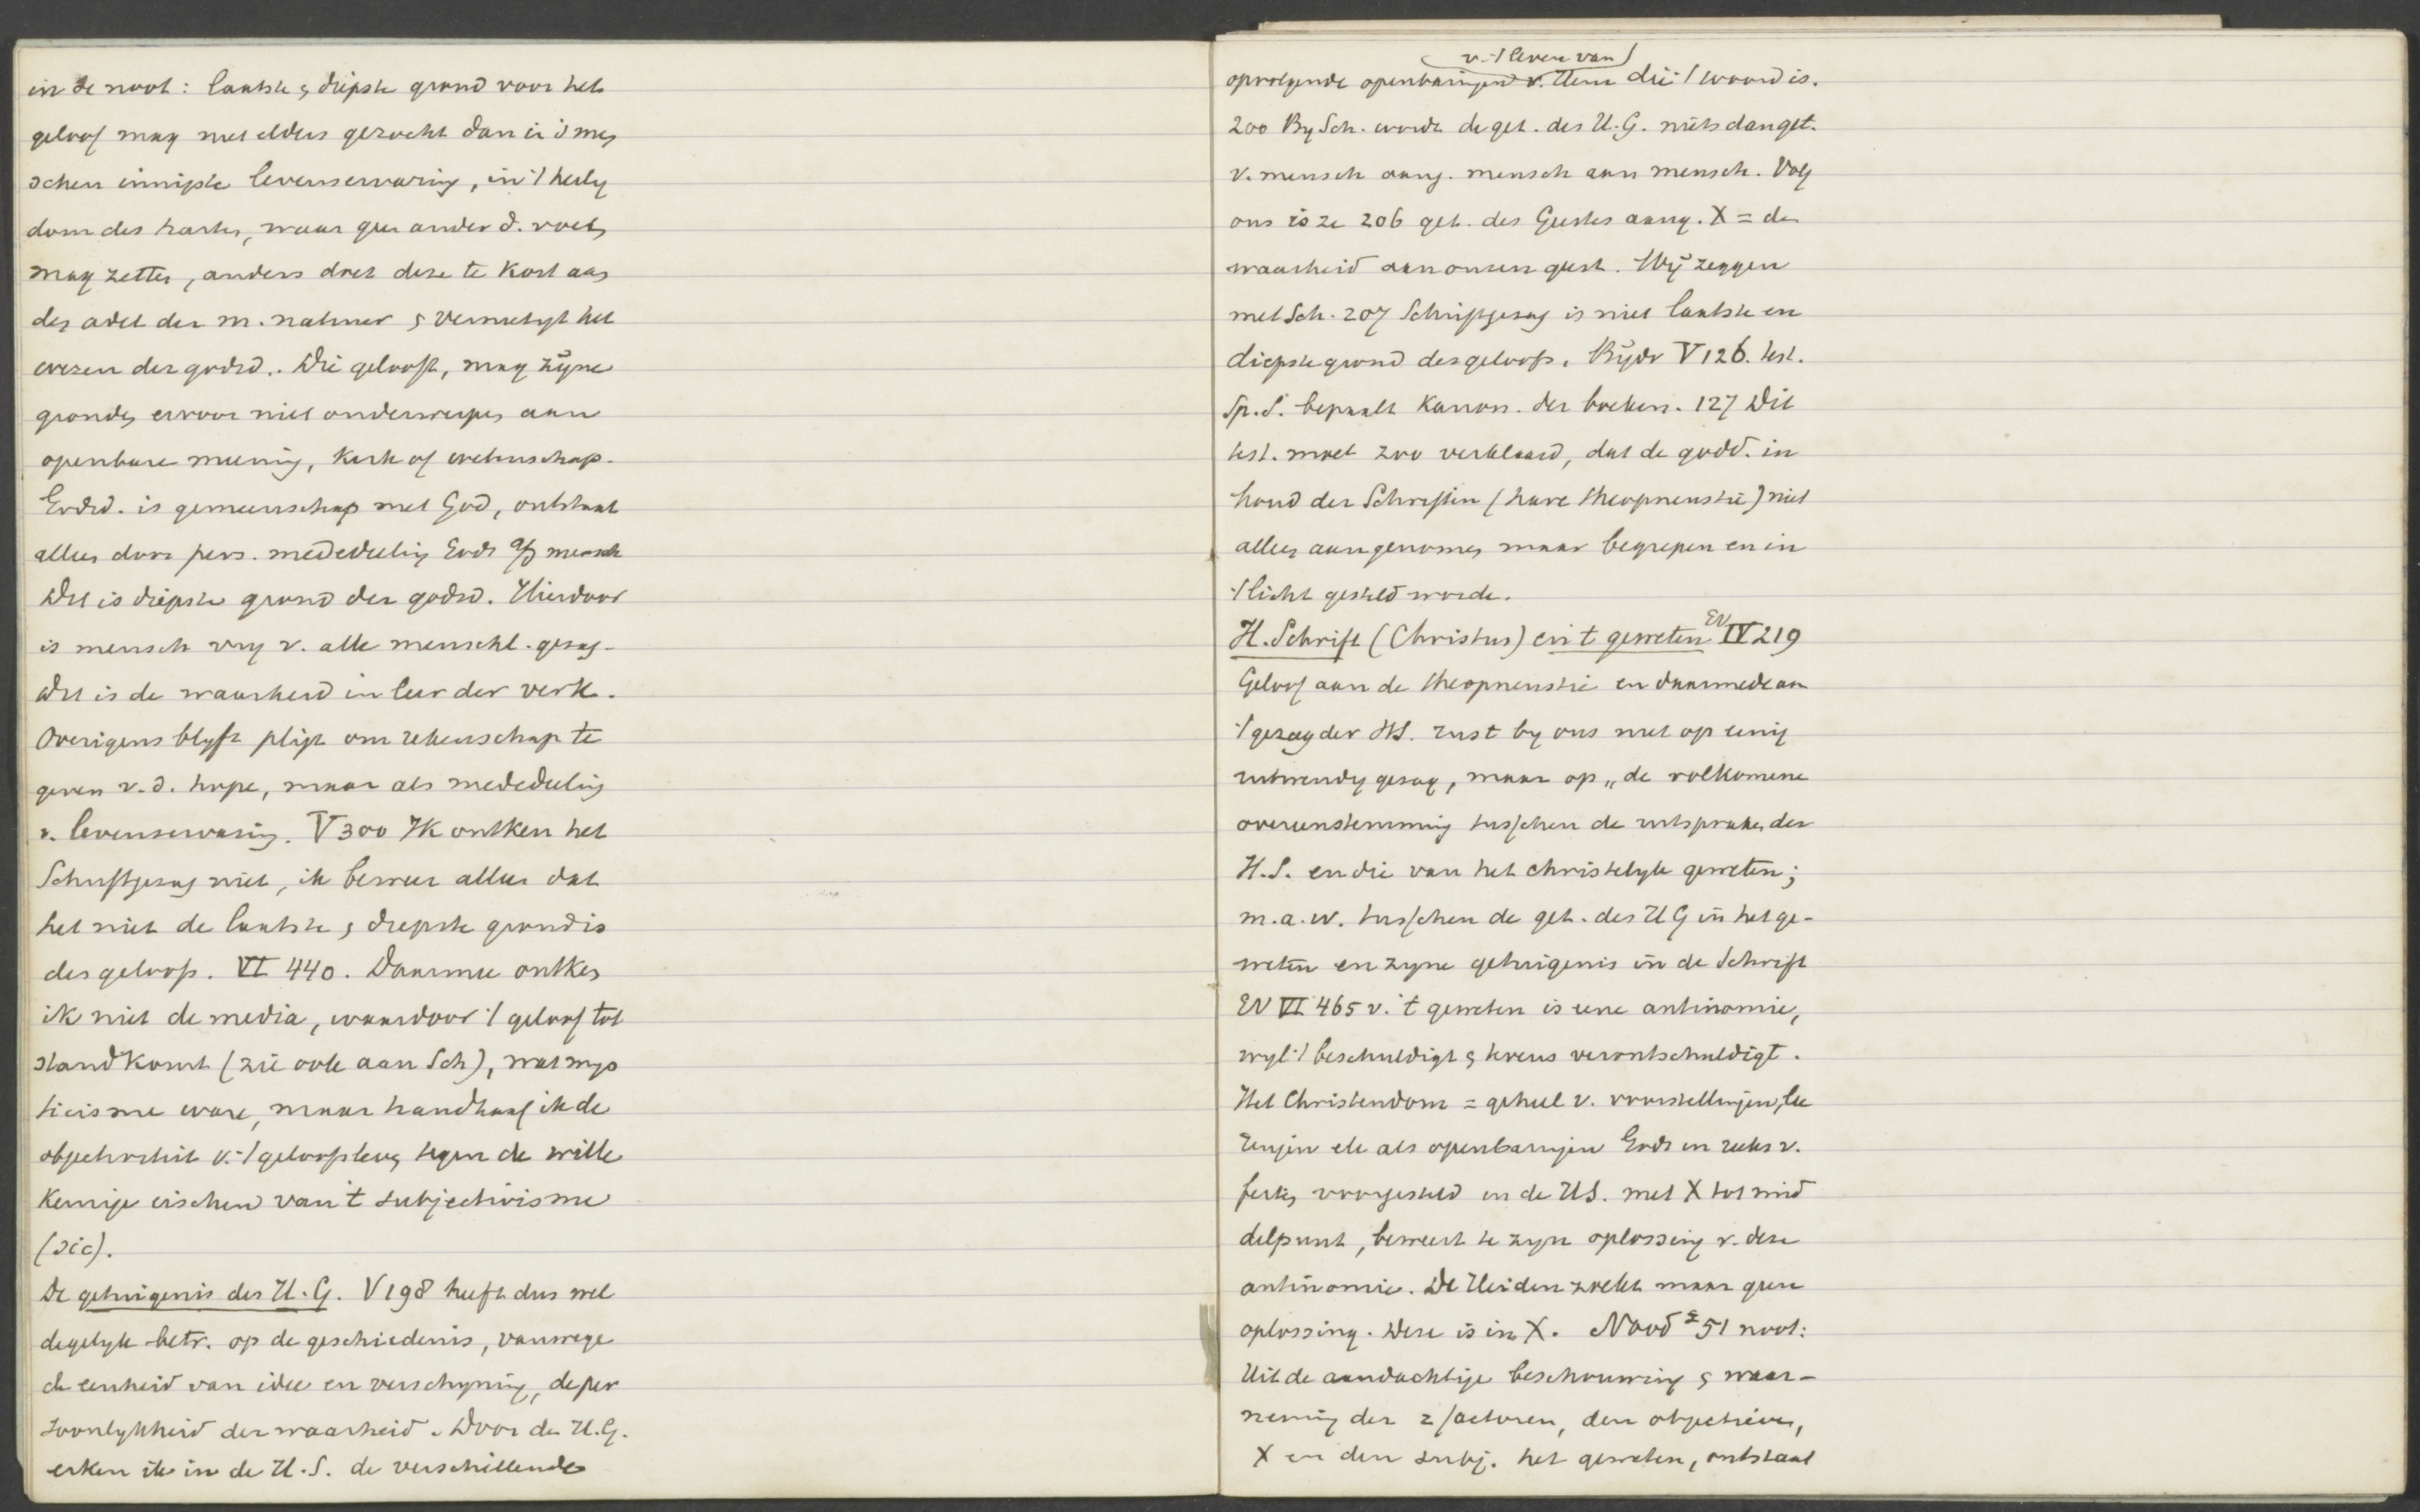 in de noot: laatste & diepste grond voor het
geloof mag niet elders gezocht dan in 's men
schen innigste levenservaring, in 't heilig
dom des harten, waar geen ander d. voet
mag zetten, anders doet deze te kort aan
den adel der m. natuur & vernietigt het
wezen der godsd.. Wie gelooft, mag zijne
gronden ervoor niet onderwerpen aan
openbare meening, kerk of wetenschap.
Godsd. is gemeenschap met God, ontstaat
alleen door pers. mededeeling Gods a/d mensch
Dit is diepste grond der godsd. Hierdoor
is mensch vrij v. alle menschl. gezag.
Dit is de waarheid in leer der verk.
Overigens blijft plicht om rekenschap te
geven v. d. hope, maar als mededeeling
v. levenservaring. V 300 Ik ontken het
Schriftgezag niet, ik beweer alleen dat
het niet de laatste & diepste grond is
des geloofs. VI 440. Daarmee ontken
ik niet de media, waardoor 't geloof tot
stand komt (zie ook aan Sch), wat mys
ticisme ware, maar handhaaf ik de
objectiviteit v. 't geloofsleven tegen de wille
keurige eischen van 't subjectivisme
(sic).
De getuigenis des H. G. V 198 heeft dus wel
degelijk betr. op de geschiedenis, vanwege
de eenheid van idee en verschijning, de per
soonlijkheid der waarheid. Door de H. G.
erken ik in de H. S. de verschillende
v. 't leven van
opvolgende openbaringen v. Hem die 't woord is.
200 By Sch. wordt de get. des H. G. niets dan get.
v. mensch aang. mensch aan mensch. Volg
ons is ze 206 get. des Geestes aang. X = de
waarheid aan onzen geest. Wij zeggen
met Sch. 207 Schriftgezag is niet laatste en
diepste grond des geloofs. Bijdr V 126. test.
Sp. S. bepaalt kanon. der boeken. 127 Dit
test. moet zoo verklaard, dat de godd. in
houd der Schriften (hare theopneustie) niet
alleen aangenomen maar begrepen en in
't licht gesteld worde.
H. Schrift (Christus) en 't geweten EV IV 219
Geloof aan de theopneustie en daarmede aan
't gezag der HS. rust by ons niet op eenig
uitwendig gezag, maar op „de volkomene
overeenstemming tusschen de uitspraken der
H. S. en die van het christelijk geweten;
m. a. w. tusschen de get. des H G in het ge-
weten en zijne getuigenis in de Schrift
EV VI 465 v. 't geweten is eene antinomie,
wijl 't beschuldigt & tevens verontschuldigt.
Het Christendom = geheel v. voorstellingen, lee
ringen etc als openbaringen Gods in reeks v.
feiten voorgesteld in de HS. met X tot mid
delpunt, beweert te zijn oplossing v. deze
antinomie. De Heiden zoekt maar geen
oplossing. Deze is in X. Nood 2 51 noot:
Uit de aandachtige beschouwing & waar-
neming der 2 factoren, den objectieven,
X en den subj. het geweten, ontstaat